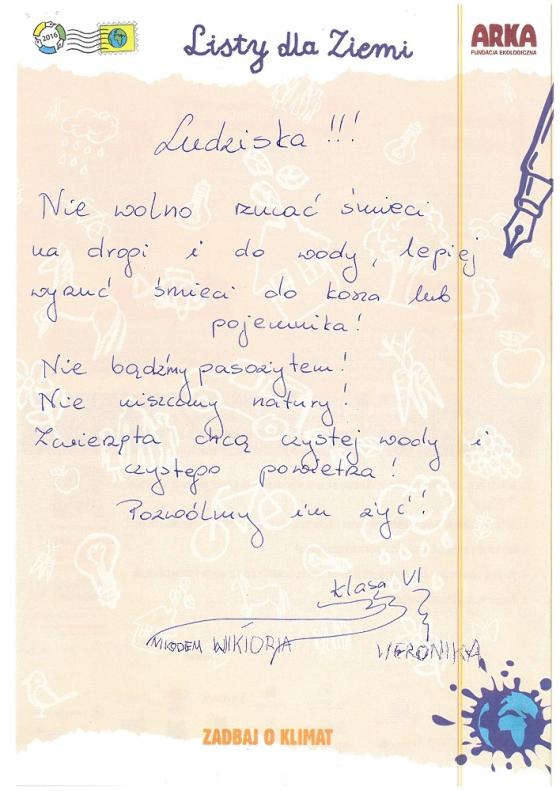 2016
Listy dla Ziemi
ARKA
FUNDACJA EKOLOGICZNA
Ludziska !!!
Nie wolno rzucać śmieci
na drogi i do wody, lepiej
wyrzuć śmieci do kosza lub
pojemnika!
Nie bądźmy pasożytem!
Nie niszczmy natury!
Zwierzęta chcą czystej wody i
czystego powietrza!
Pozwólmy im żyć!!
klasa VI
WIKTORJA WERONIKA
ZADBAJ O KLIMAT